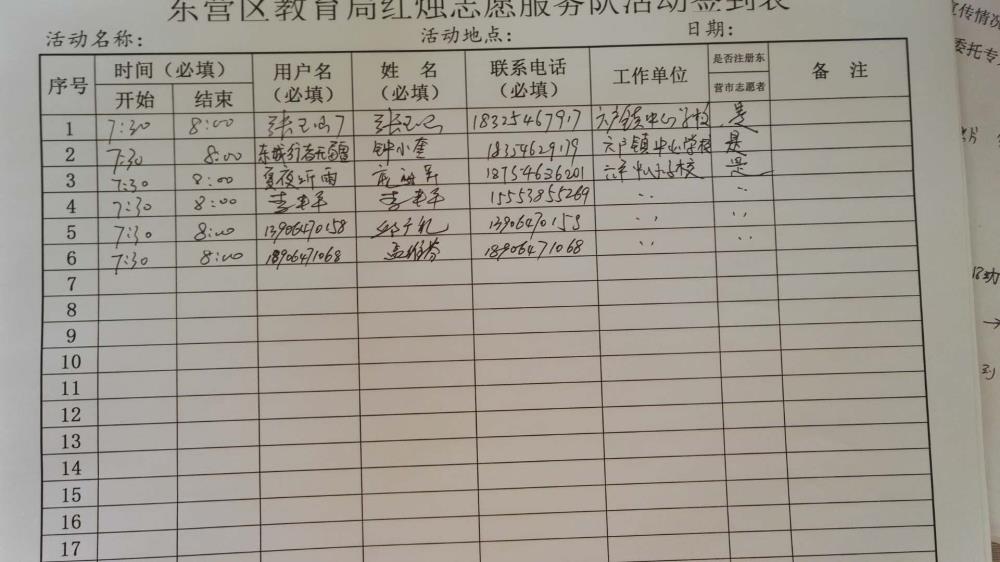 东营区教育局红烛志愿服务队活动签到表
活动名称： 活动地点： 日期：
序号 时间（必填） 用户名（必填） 姓 名（必填） 联系电话（必填） 工作单位 是否注册东营市志愿者 备 注
开始 结束
1 7:30 8:00 18325467917 六户镇中心学校 是
2 7:30 8:00 钟小奎 18354629179 六户镇中心学校 是
3 7:30 8:00 夏夜听雨 18754636201 是
4 7:30 8:00 15553855269
5 7:30 8:00 13906470158 13906470158
6 7:30 8:00 18906471068 18906471068
7
8
9
10
11
12
13
14
15
16
17